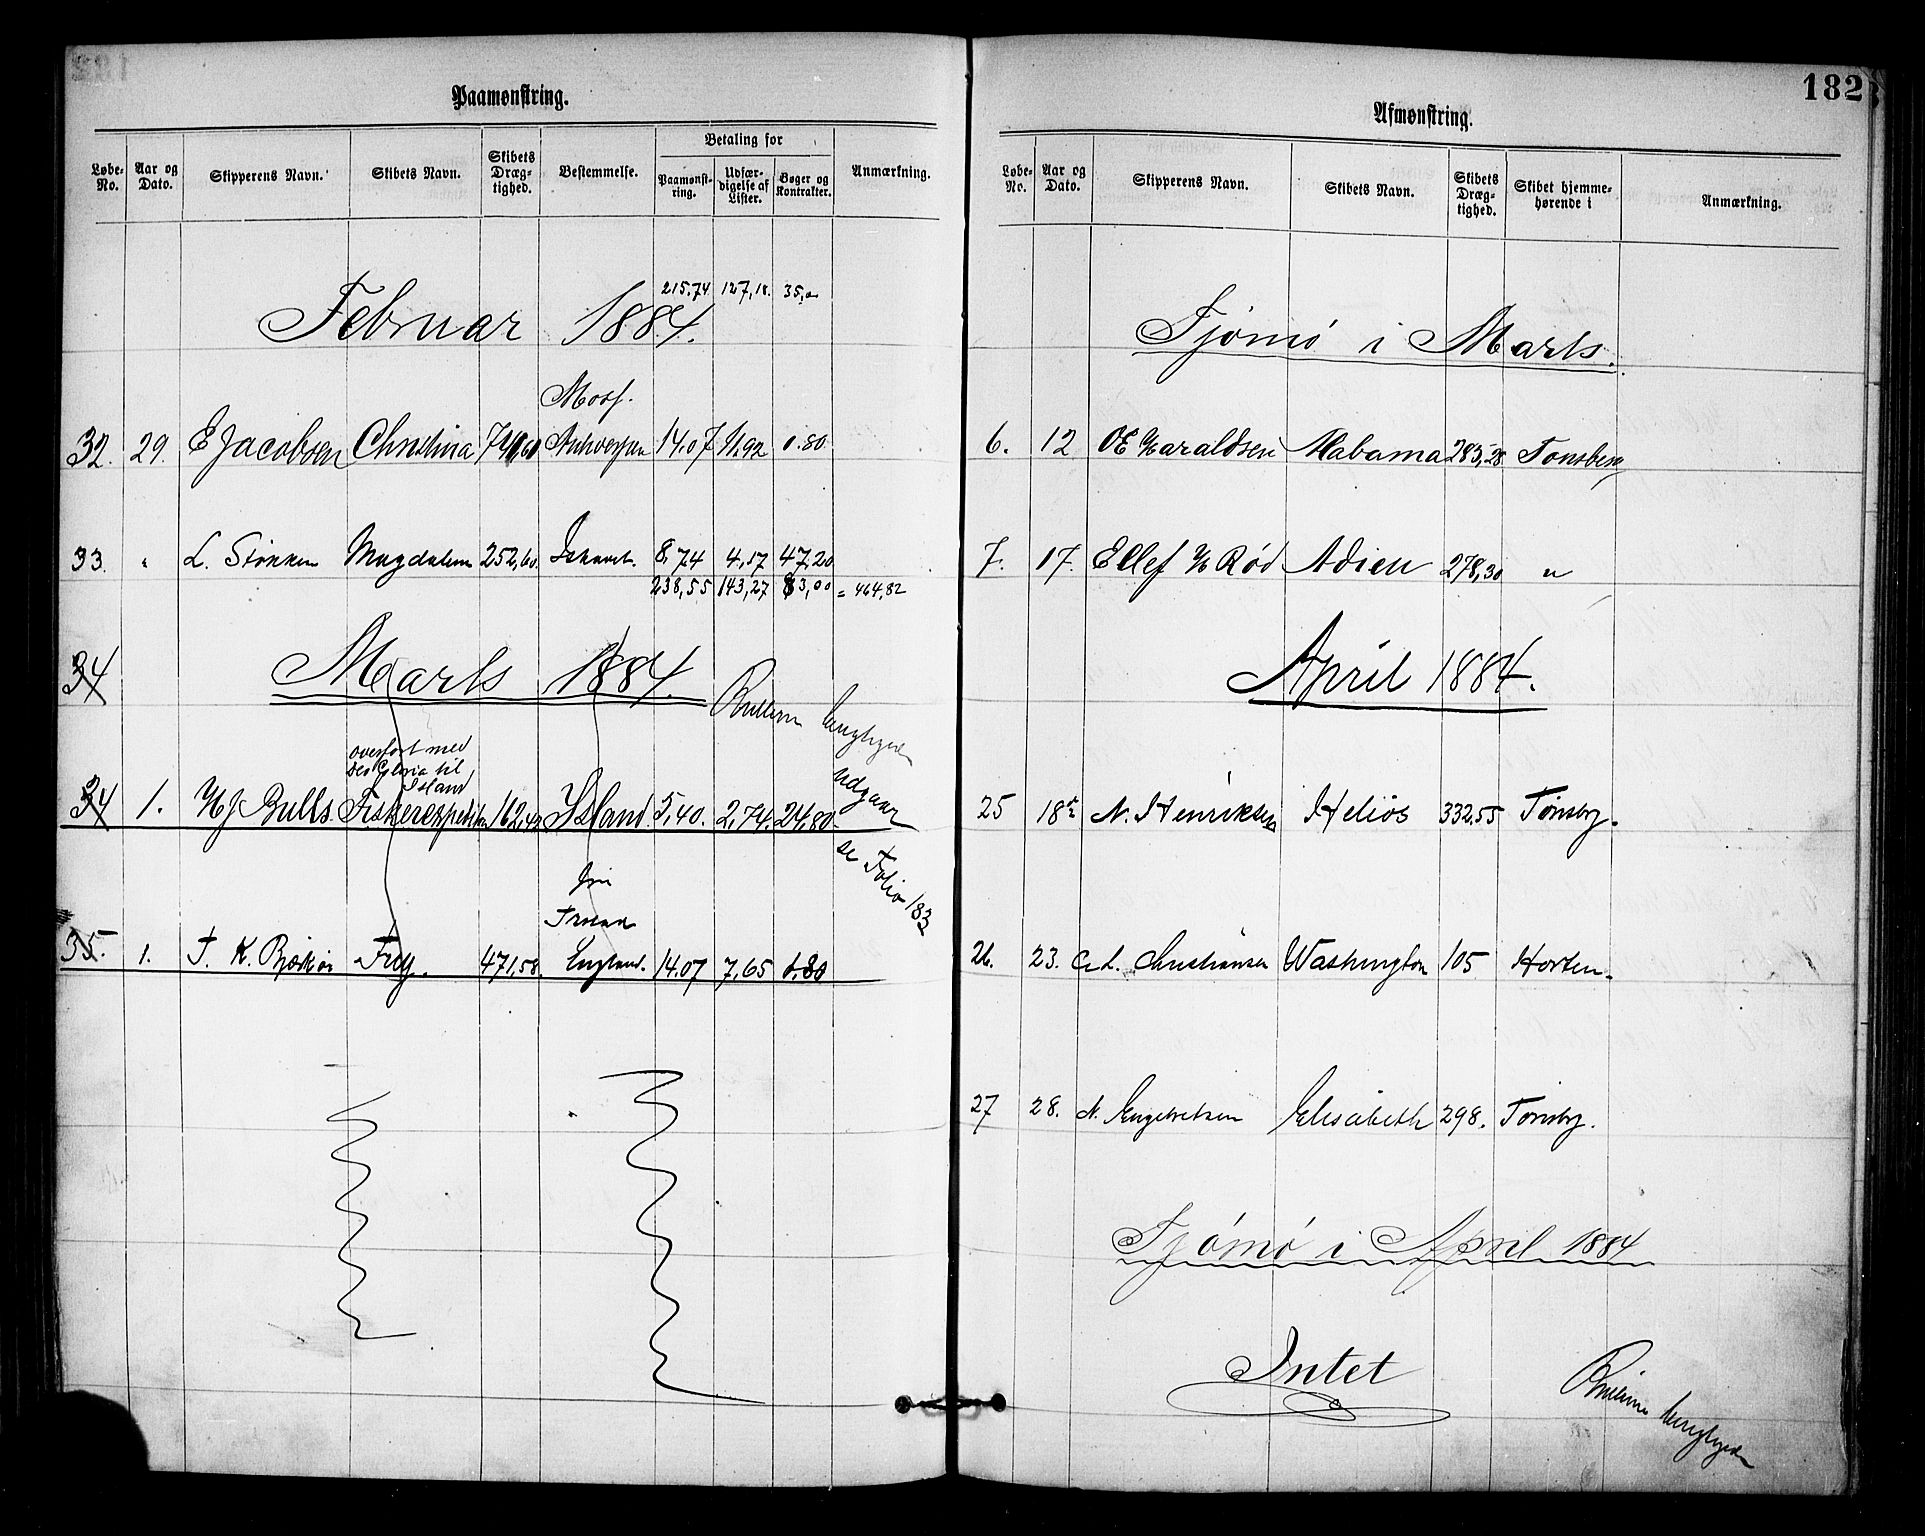 182
Paamønstring.
Løbe-No. Aar og Dato. Skipperens Navn. Skibets Navn. Skibets Dræg-tighed. Bestemmelse. Betaling for Paamønst-ring. Udfær-digelse af Lister. Bøger og Kontrakter. Anmærkning.
215.74 127,18. 35,00
Februar 1884.
Moss.
32. 29. E Jacobsen Christina Antwerpen 14.07 11.92 0.80
33. " L. Stokken Magdalena 252,60. Ishavet. 8,74 4,17 47,20
238,55 143,27 83,00 = 464,82
34 Marts 1884.
overført med
Deo Gloria til
Island
34 1. H J Bulls. Fiskerexpedition 162,42 Island. 5,40. 2,74. 24,80.
udgaar
se Folio 183
35. 1. T. K. Frey. 471,58 England. 14.07 7,65 0.80
Afmønstring.
Løbe-No. Aar og Dato. Skipperens Navn. Skibets Navn. Skibets Dræg-tighed. Skibet hjemme-hørende i Anmærkning.
Tjömö i Marts.
6. 12 OE Haraldsen Alabama 283,28 Tønsberg
7. 17. Ellef H Rød Adieu 278,30 "
April 1884.
25 18de N. Henriksen Helios 332.55 Tønsbg.
26. 23. C. L. Christiansen Washington 105 Horten.
27 28. N. Engebretsen Elisabeth 298. Tønsbg.
Tjömö i April 1884
Intet